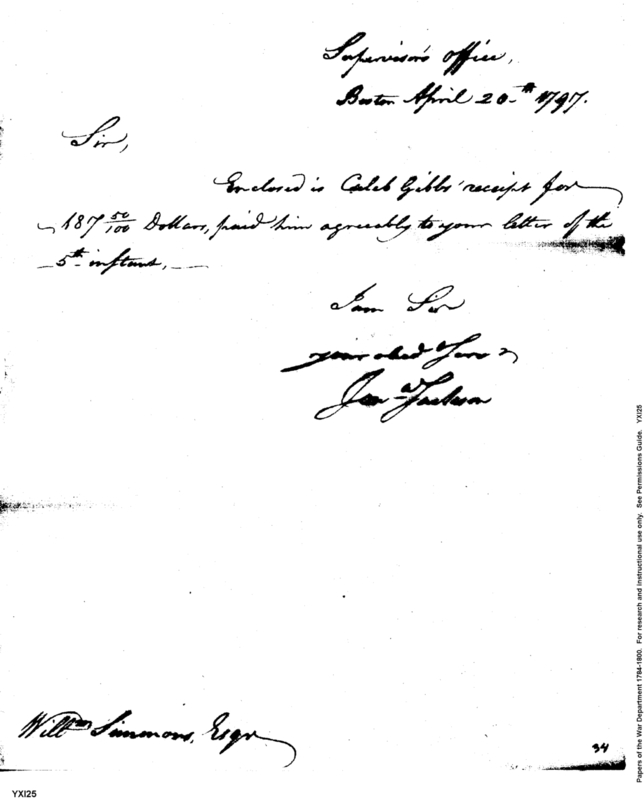 Supervisor's office,
Boston April 20th 1797.
Sir,
Enclosed is Caleb Gibbs' receipt for
187 50/100 Dollars, paid him agreeably to your letter of the
5th instant,
I am Sir
your obed Serv
Jona Jackson
Willm Simmons, Esqr
34
YXI25
Papers of the War Department 1784-1800. For research and instructional use only. See Permissions Guide. YXI25